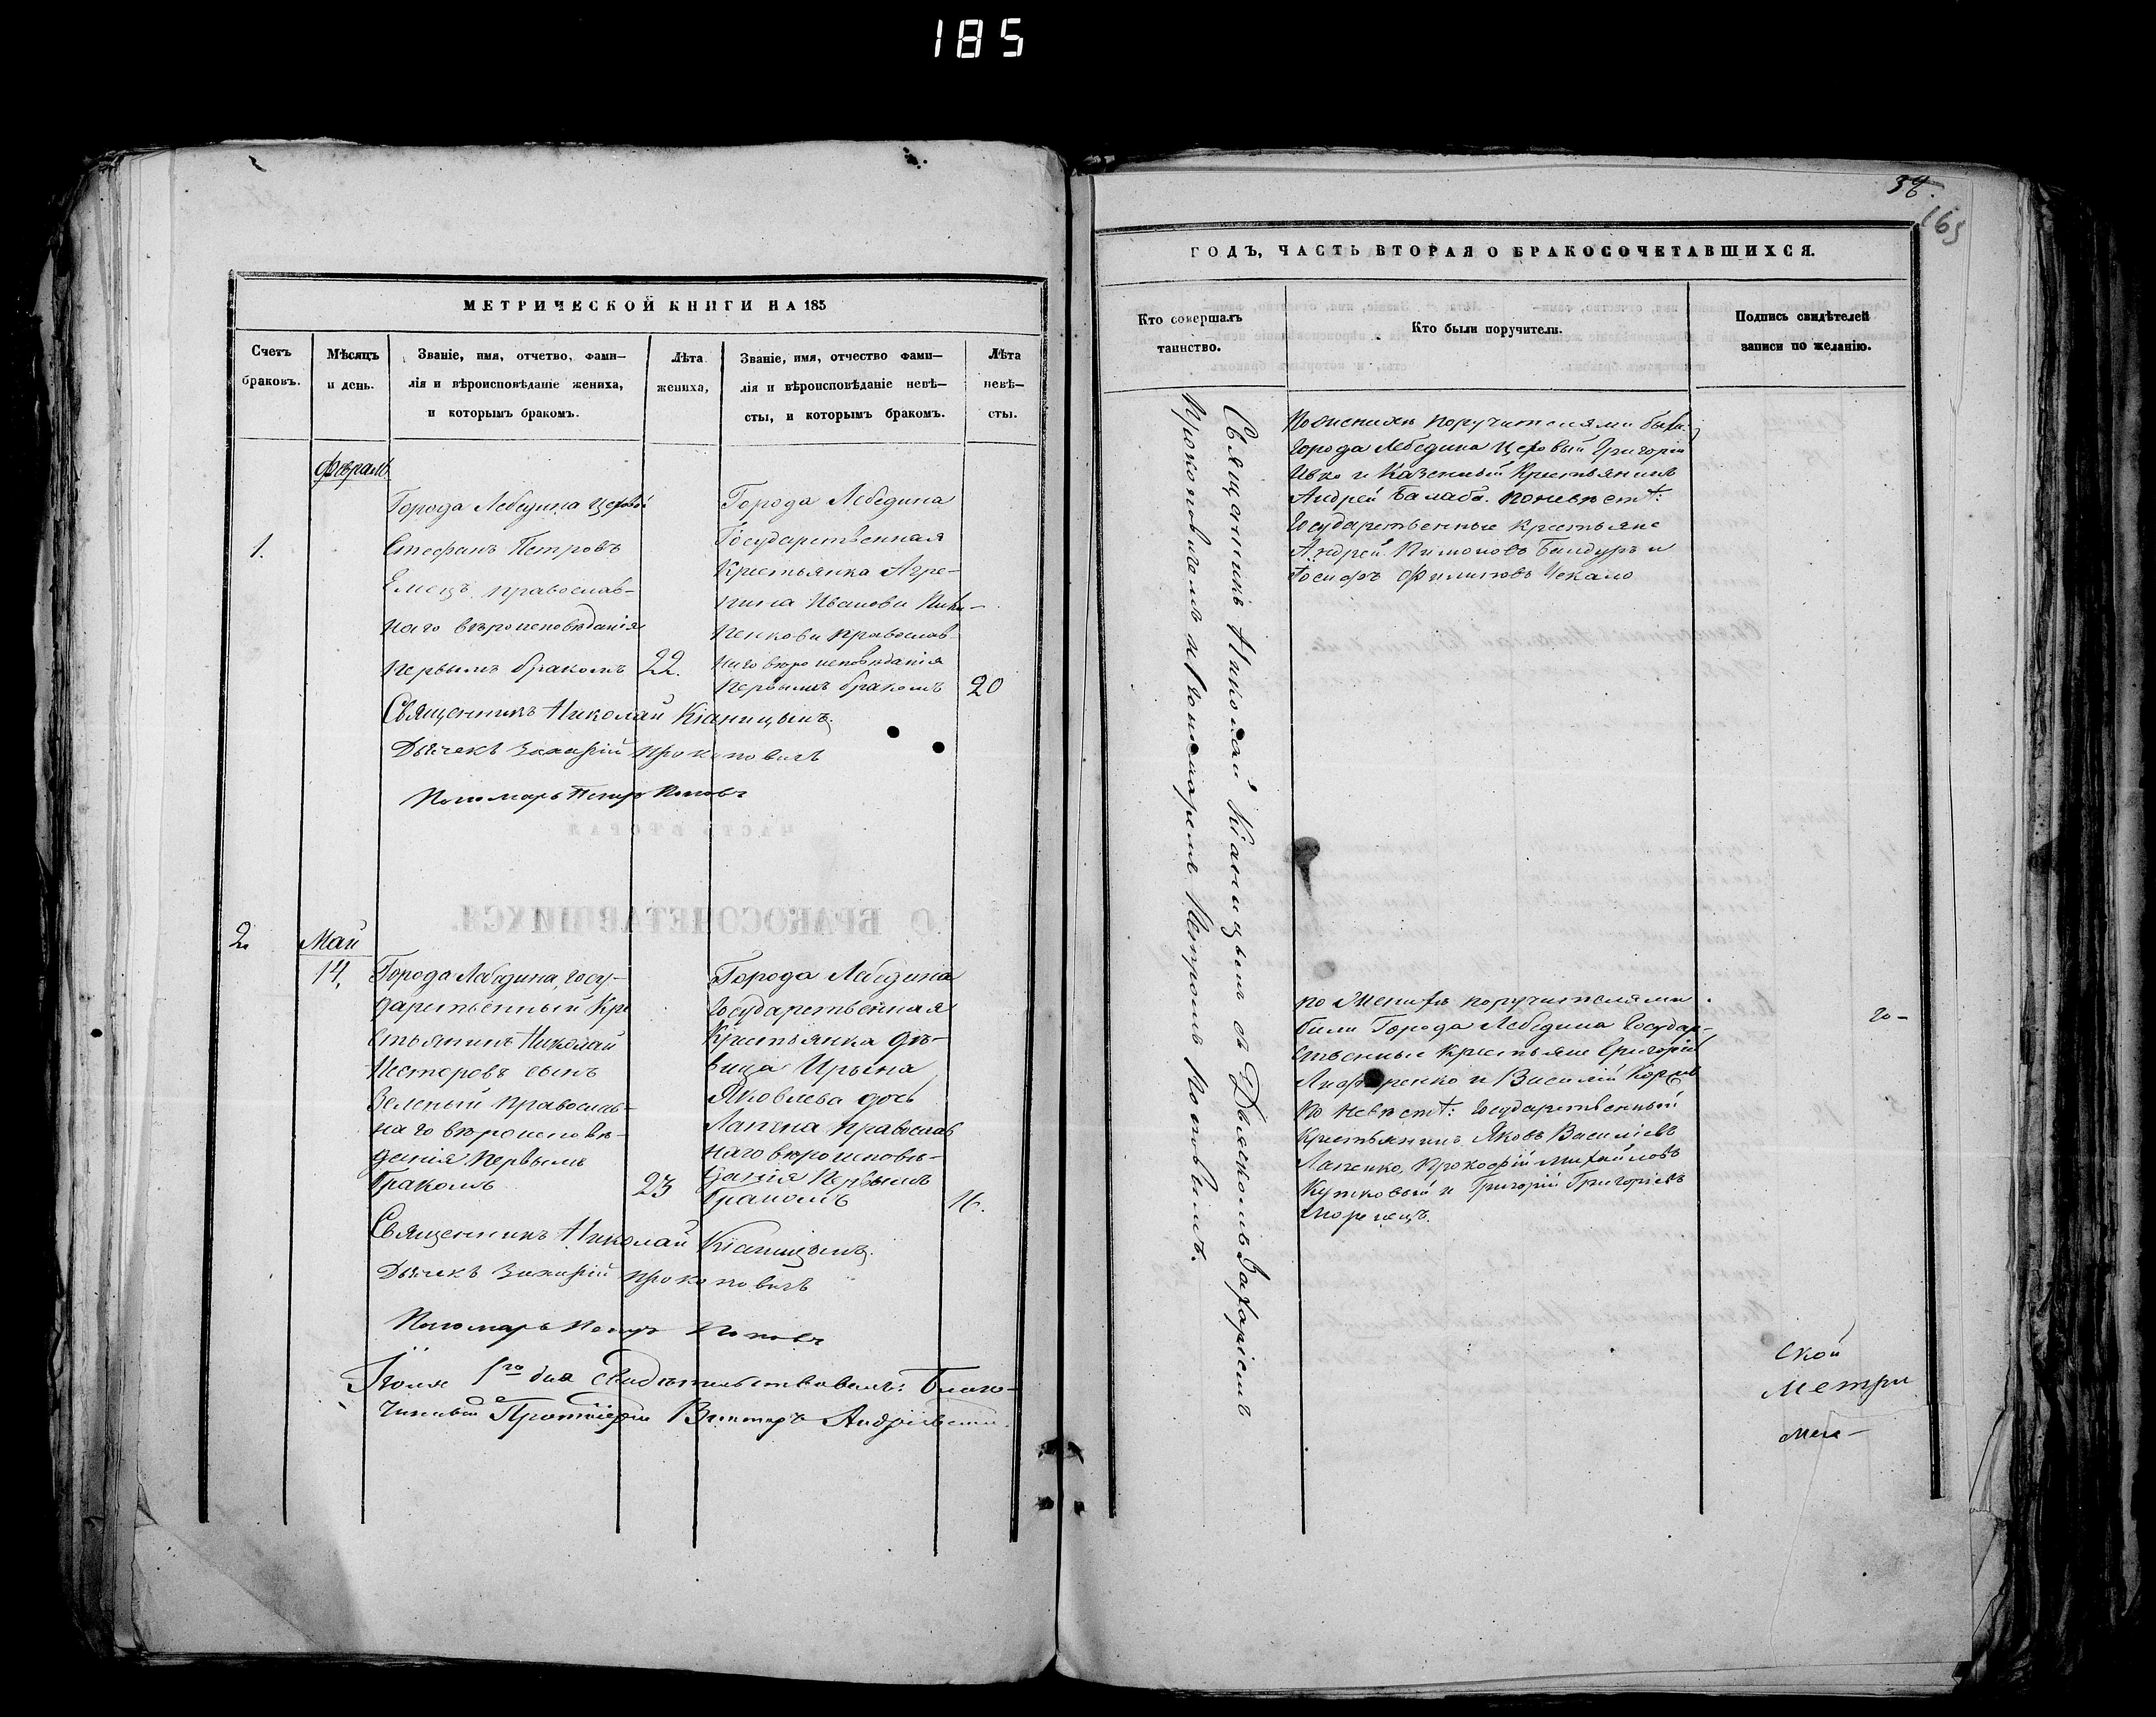 185
МЕТРИЧЕСКОЙ КНИГИ НА 185
Счетъ
браковъ.
Мѣсяцъ
и день.
Званіе, имя, отчетво, фами—
лія и вѣроисповѣданіе жениха,
и которымъ бракомъ.
Лѣта
жениха,
Званіе, имя, отчество фами—
лія и вѣроисповѣданіе невѣ—
сты, и которымъ бракомъ.
Лѣта
невѣ—
сты.
Февраль
1.
Города Лебедина
Стефанъ Петровъ
Емецъ православ-
наго вѣроисповѣданія
первымъ бракомъ
22.
Города Лебедина
Государственная
Крестьянка Агре-
пина Иванова
православ-
наго вѣроисповѣданія
первымъ бракомъ
20
Священникъ Николай Кіаницынъ
Дьячекъ Захарій Прокоповичъ
Пономарь Петръ Поповъ
2.
Май
14,
Города Лебедина, Госу-
дарственный Кре
стьянинъ Николай
Нестеровъ сынъ
Зеленый православ-
наго вѣроисповѣ-
данія первымъ
бракомъ
23
Города Лебедина
Государственная
Крестьянка дѣ-
вица Ирына
Яковлева дочь
Лапина православ
наго вѣроисповѣ-
данія первымъ
бракомъ
16.
Священникъ Николай Кіаницынъ.
Дьячекъ Захарій Прокоповичъ
Пономарь Петръ Поповъ
Іюля 1го дня свидѣтельствовалъ: Благо-
чинный Протоіерей Викторъ
38.
165
ГОДЪ, ЧАСТЬ ВТОРАЯ О БРАКОСОЧЕТАВШИХСЯ.
Кто совершалъ
таинство.
Кто были поручители.
Подпись свидѣтелей
записи по желанію.
Священникъ Николай Кіаницынъ съ Дьячкомъ Захаріемъ
Прокоповичемъ и Пономаремъ Петромъ Поповымъ.
По женихѣ поручителями были
Города Лебедина Григорій
и Казенный Крестьянинъ
Андрей по невѣстѣ:
Государственные Крестьяне
Андрей Бандуръ и
Іосифъ Филиповъ Чекало
по Женихѣ поручителями
были Города Лебедина Государ-
ственные Крестьяне Григорій
и Василій
По невѣстѣ: Государственный
Крестьянинъ Яковъ Василіевъ
Лапенко, Прокофій Михайловъ
Кутковый и Григорій Григоріевъ
го-
ской
Метри